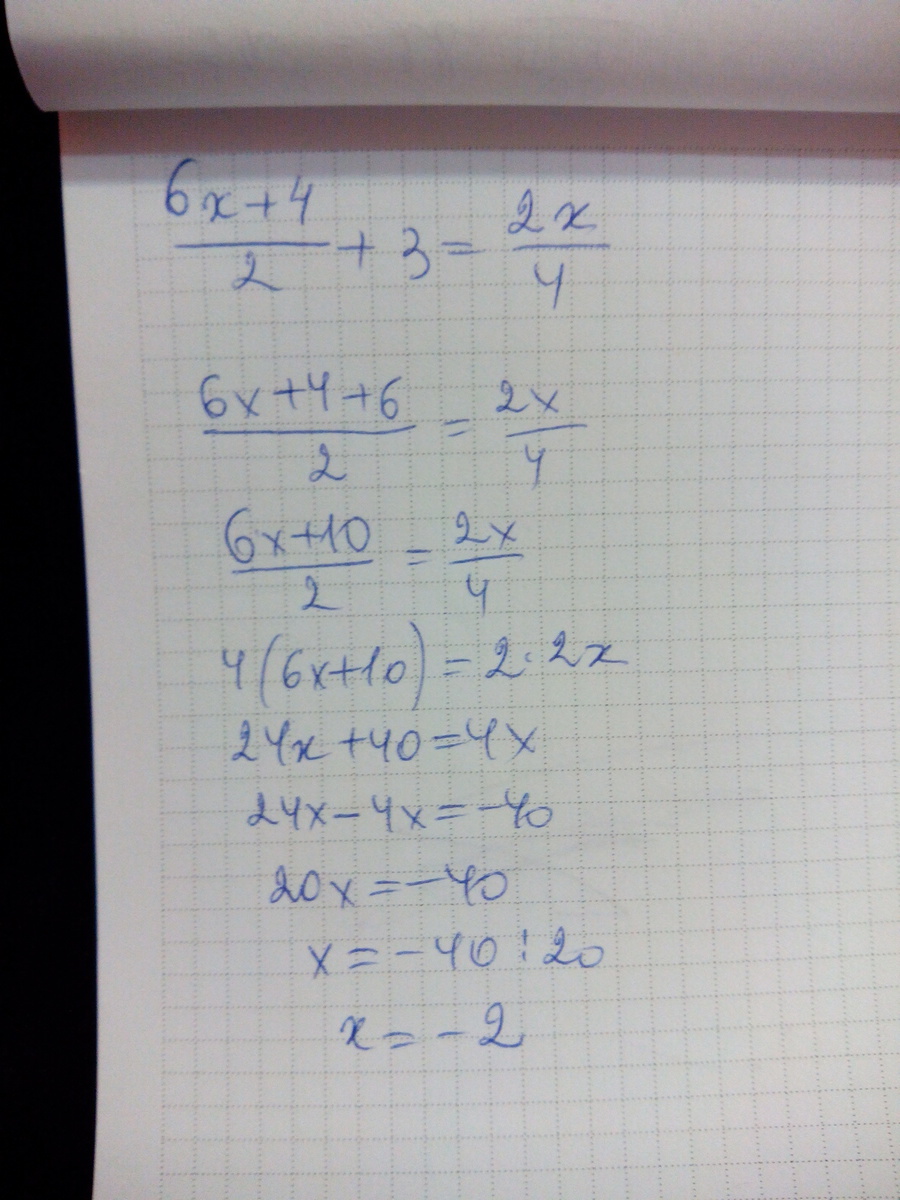 (6x+4)/2 + 3 = 2x/4
(6x+4+6)/2 = 2x/4
(6x+10)/2 = 2x/4
4(6x+10) = 2·2x
24x+40=4x
24x-4x=-40
20x=-40
x=-40:20
x=-2